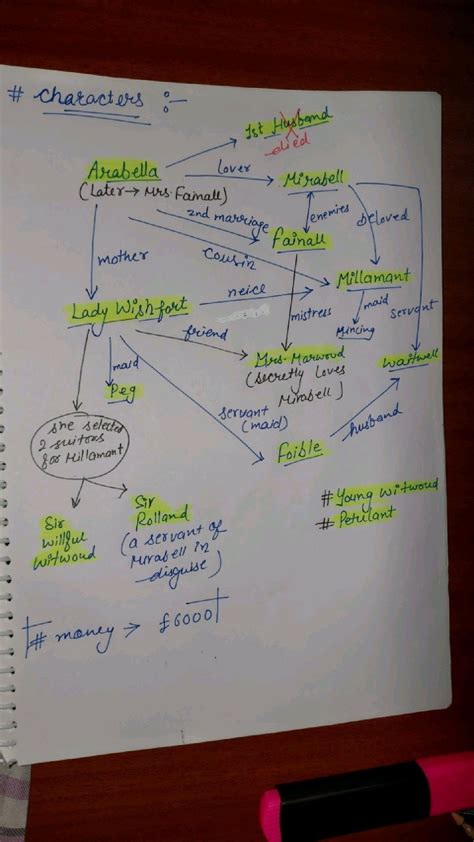 # Characters :-
1st Husband
died
Arabella
(Later → Mrs. Fainall)
lover
Mirabell
2nd marriage
enemies
beloved
Fainall
mother
cousin
Millamant
Lady Wishfort
neice
mistress
maid
servant
Mincing
friend
Mrs. Marwood
(secretly loves
Mirabell)
Waitwell
maid
Peg
servant
(maid)
husband
Foible
she selected
2 suitors
for Millamant
Sir
Willful
Witwoud
Sir
Rolland
(a servant of
Mirabell in
disguise)
# Young Witwoud
# Petulant
# money → £6000